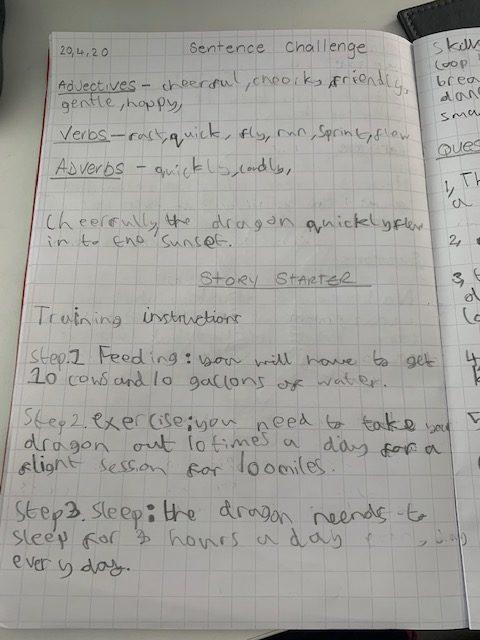 20,4,20 Sentence Challenge
Adjectives - cheerful, choocky, friendly,
gentle, happy,
Verbs - fast, quick, fly, run, Sprint, flew
Adverbs - quickly, loudly,
Cheerfully, the dragon quickly flew
in to the sunset.
STORY STARTER
Training instructions
Step.1 Feeding: you will have to get
10 cows and 10 gallons of water.
Step 2. exercise: you need to take your
dragon out 10 times a day for a
flight session for 100 miles.
Step 3. Sleep: the dragon neends to
sleep for 3 hours a day
every day.
Skills
loop
brea
dan
sma
Ques
1, Th
a
2,
3,
4